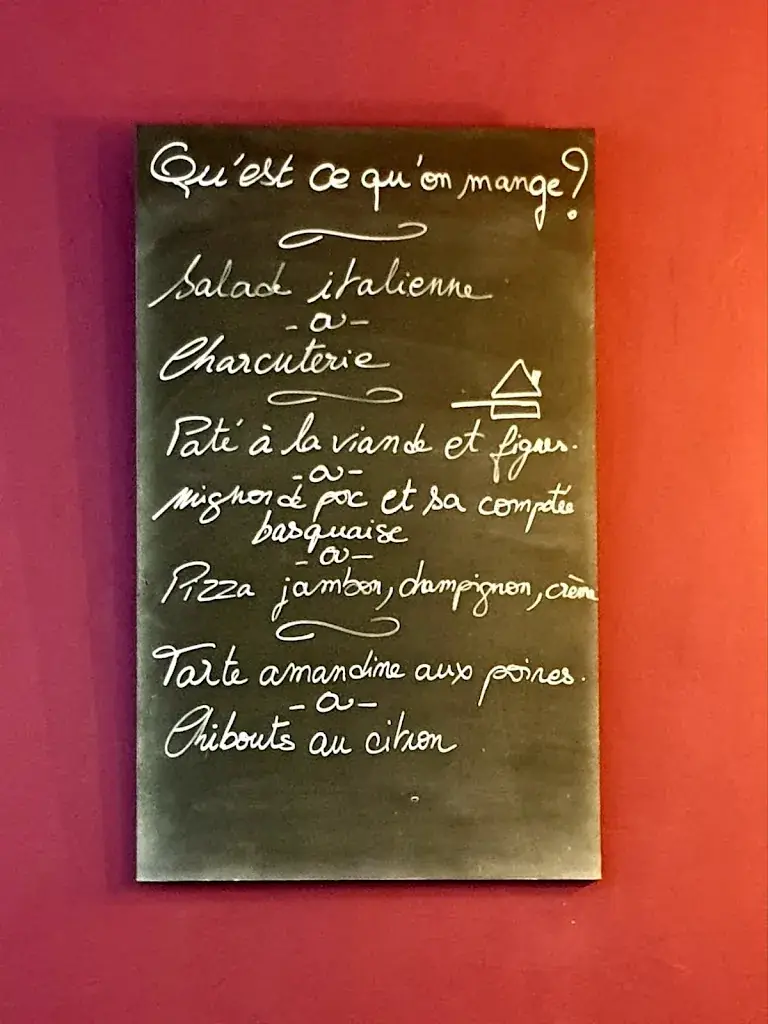 Qu'est ce qu'on mange?
Salade italienne
- ou -
Charcuterie
Paté à la viande et figues.
- ou -
mignon de porc et sa compotée
basquaise
- ou -
Pizza jambon, champignon, crème
Tarte amandine aux poires.
- ou -
Chibouts au citron